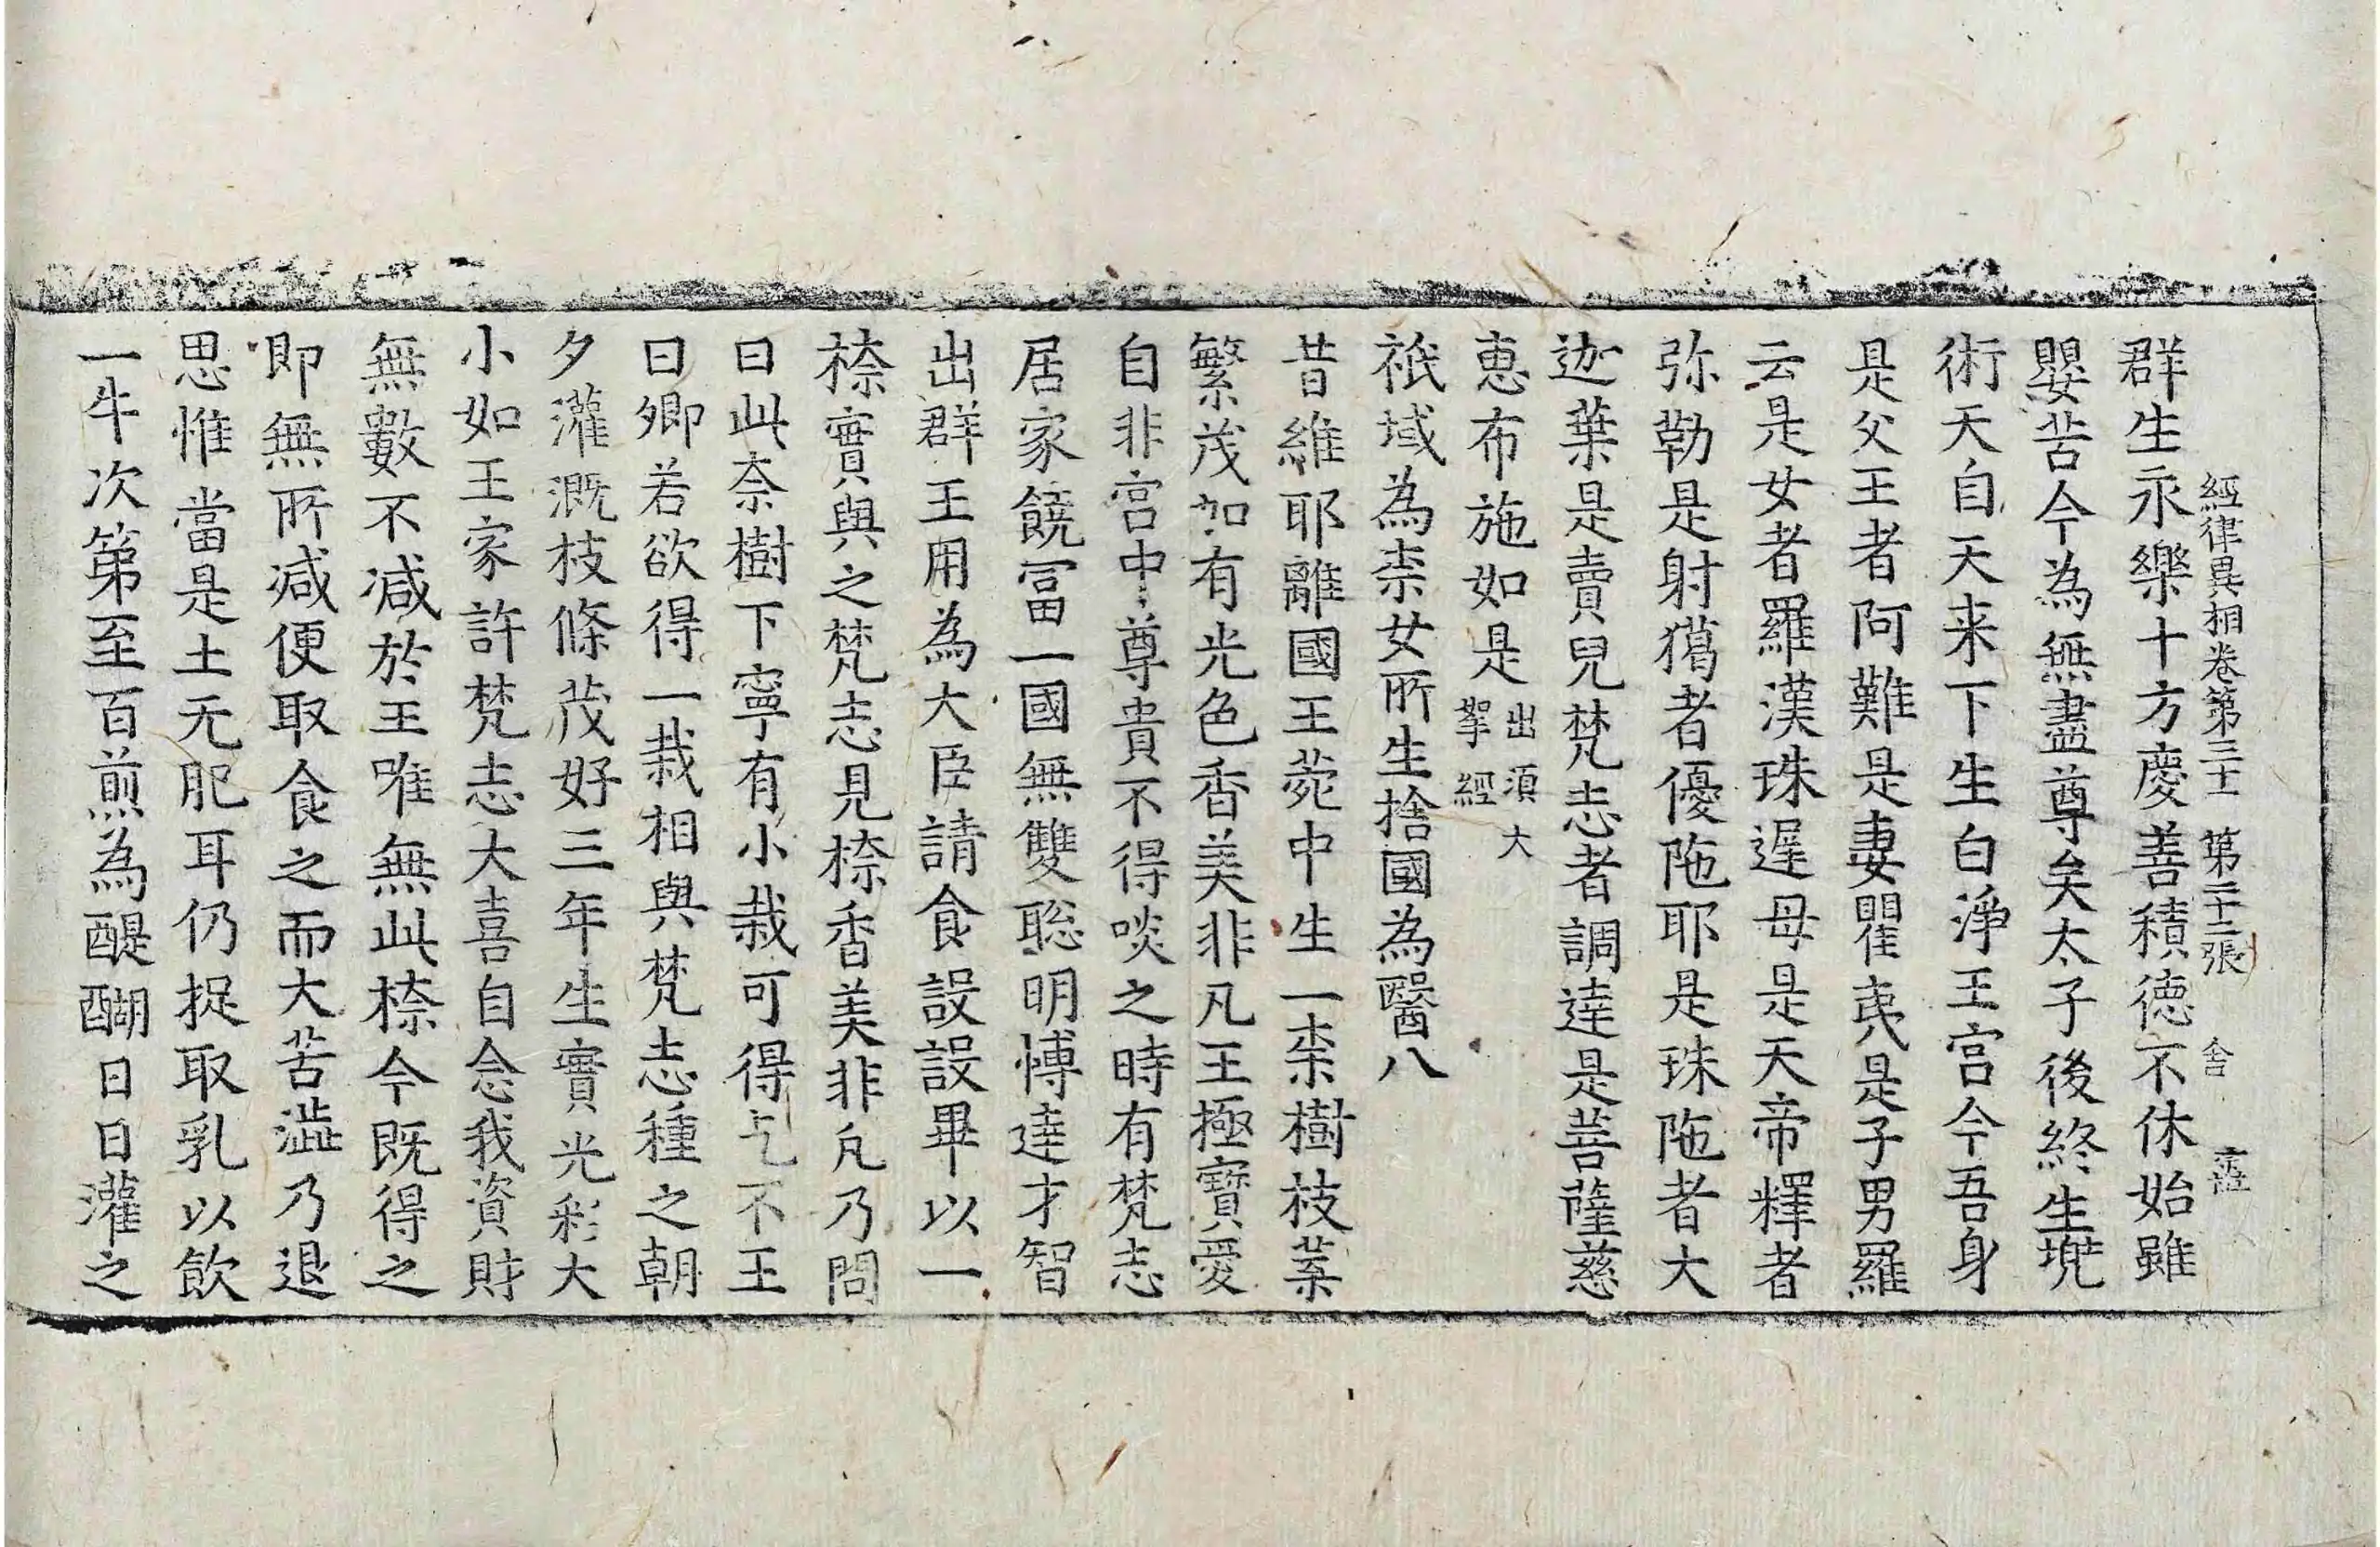 經律異相卷第三十一 第二十二張 舍
群生永樂十方慶善積德不休始雖
嬰苦今為無盡尊矣太子後終生兠
術天自天来下生白淨王宫今吾身
是父王者阿難是妻瞿夷是子男羅
云是女者羅漢珠遅母是天帝釋者
弥勒是射獦者優陁耶是珠陁者大
迦葉是賣兒梵志者調達是菩薩慈
恵布施如是 出須大
拏經
祇域為柰女所生捨國為醫八
昔維耶離國王菀中生一柰樹枝葉
繁茂加有光色香美非凡王極寶愛
自非宫中尊貴不得啖之時有梵志
居家饒冨一國無雙聡明愽達才智
出群王用為大臣請食設設畢以一
㮈實與之梵志見㮈香美非凡乃問
曰此奈樹下寧有小栽可得乞不王
曰卿若欲得一栽相與梵志種之朝
夕灌溉枝條茂好三年生實光彩大
小如王家許梵志大喜自念我資財
無數不减於王唯無此㮈今既得之
即無所减便取食之而大苦澁乃退
思惟當是土无肥耳仍捉取乳以飲
一牛次第至百煎為醍醐日日灌之